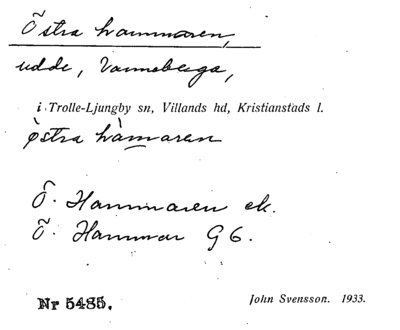 Östra hammaren,
udde, Vanneberga,
i Trolle-Ljungby sn, Villands hd, Kristianstads l.
östra hàmaren
Ö. Hammaren ek.
Ö. Hammar G 6.
Nr 5485. John Svensson. 1933.